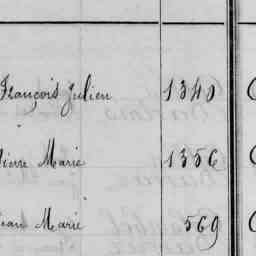 François Julien 1340
Pierre Marie 1356
Jean Marie 569